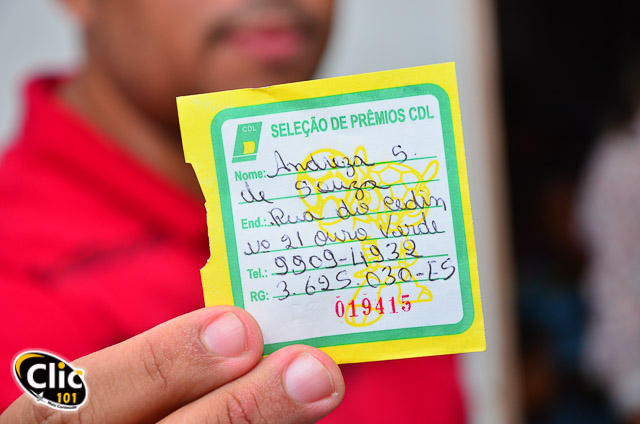 CDL
SELEÇÃO DE PRÊMIOS CDL
Nome: Andreza S.
de Souza
End.: Rua do Cedin
nº 21 Ouro Verde
Tel.: 9909-4932
RG: 3.625.030-ES
019415
Clic
101